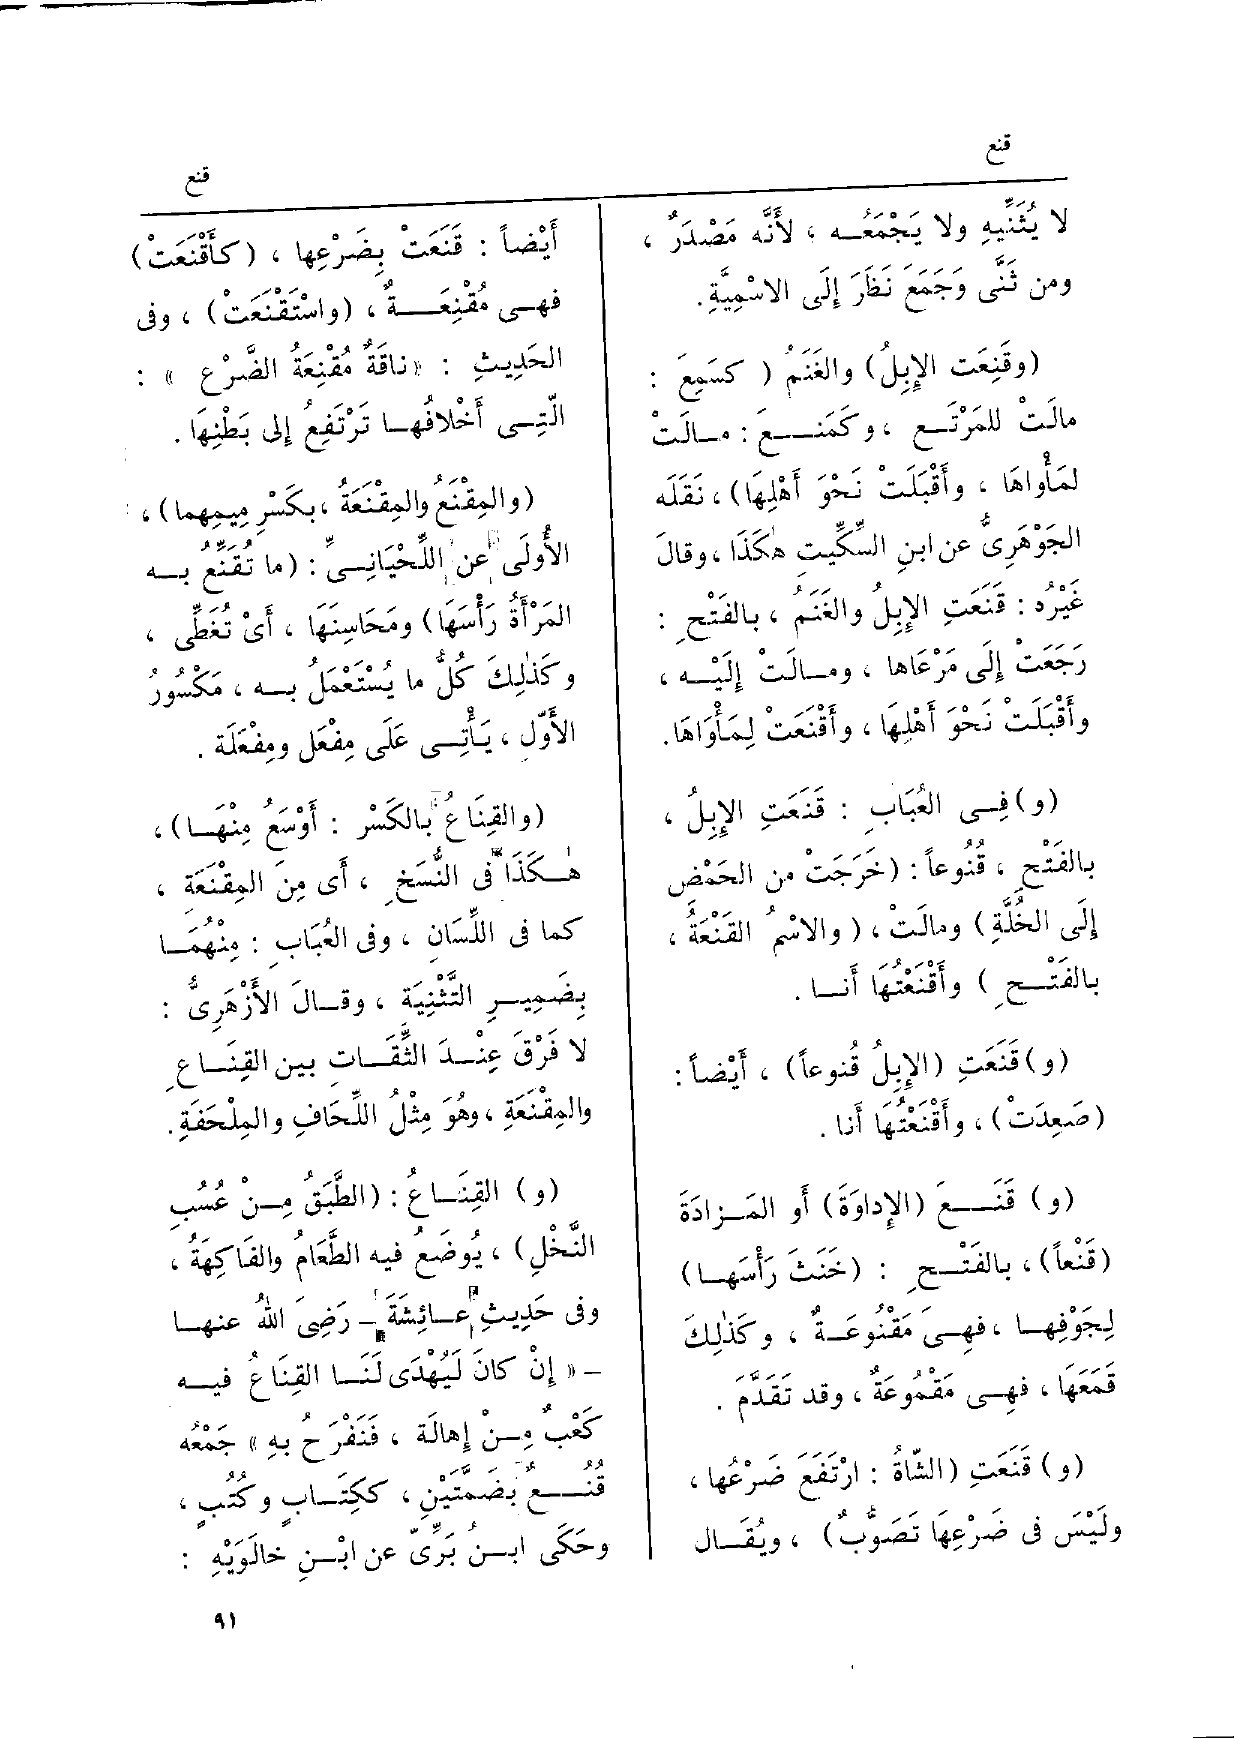 قنع
لا يُثَنِّيهِ ولا يَجْمَعُـه ، لأَنَّه مَصْدَرٌ ،
ومن ثَنَّى وَجَمَعَ نَظَرَ إِلَى الاسْمِيَّةِ.
(وقَنِعَت الإِبِلُ) والغَنَمُ ( كسَمِعَ :
مالَتْ للمَرْتَـع ، وكمَنَــعَ : مـالَتْ
لمَأْواهَا ، وأَقْبَلَتْ نَحْوَ أَهْلِهَا) ، نَقَلَه
الجَوْهَرِىُّ عن ابنِ السِّكِّيتِ هٰكَذَا ، وقالَ
غَيْرُه : قَنَعَتِ الإِبِلُ والغَنَمُ ، بالفَتْحِ :
رَجَعَتْ إِلَى مَرْعَاها ، ومـالَتْ إِلَيْـه ،
وأَقْبَلَتْ نَحْوَ أَهْلِهَا ، وأَقْنَعَتْ لِمَأْوَاهَا.
(و) فِـى العُبَابِ : قَنَعَتِ الإِبِلُ ،
بالفَتْحِ ، قُنُوعاً : (خَرَجَتْ من الحَمْضِ
إِلَى الخُلَّةِ) ومالَتْ ، ( والاسْمُ القَنْعَةُ ،
بالفَتْـحِ ) وأَقْنَعْتُهَا أَنـا .
(و) قَنَعَتِ (الإِبِلُ قُنوعاً) ، أَيْضاً :
(صَعِدَتْ) ، وأَقْنَعْتُهَا أَنا .
(و) قَنَــعَ (الإِداوَةَ) أَو المَـزادَةَ
(قَنْعاً) ، بالفَتْـحِ : (خَنَثَ رَأْسَهـا)
لِجَوْفِهـا ، فهِـىَ مَقْنُوعَـةٌ ، وكَذٰلِكَ
قَمَعَها ، فهِـى مَقْمُوعَةٌ ، وقد تَقَدَّمَ .
(و) قَنَعَتِ (الشّاةُ : ارْتَفَعَ ضَرْعُها ،
ولَيْسَ فى ضَرْعِهَا تَصَوُّبٌ) ، ويُقَـال
قنع
أَيْضاً : قَنَعَتْ بِضَرْعِها ، (كأَقْنَعَتْ)
فهـى مُقْنِعَــةٌ ، (واسْتَقْنَعَتْ) ، وفى
الحَدِيثِ : «ناقَةٌ مُقْنِعَةُ الضَّرْعِ » :
الَّتِـى أَخْلافُهـا تَرْتَفِعُ إِلى بَطْنِهَا .
(والمِقْنَعُ والمِقْنَعَةُ ، بكَسْرِ مِيمِهما) ،
الأُولَى عن اللِّحْيَانِـىِّ : (ما تُقَنِّعُ بـه
المَرْأَةُ رَأْسَهَا) ومَحَاسِنَهَا ، أَىْ تُغَطِّى ،
وكَذٰلِكَ كُلُّ ما يُسْتَعْمَلُ بـه ، مَكْسُورُ
الأَوَّلِ ، يَأْتِـى عَلَى مِفْعَلٍ ومِفْعَلَةٍ .
(والقِنَاعُ بالكَسْرِ : أَوْسَعُ مِنْهـا) ،
هٰـكَذَا فى النُّسَخِ ، أَى مِنَ المِقْنَعَةِ ،
كما فى اللِّسَانِ ، وفى العُبَابِ : مِنْهُمَـا
بِضَمِيـرِ التَّثْنِيَةِ ، وقـالَ الأَزْهَرِىُّ :
لا فَرْقَ عِنْـدَ الثِّقَـاتِ بين القِنَـاعِ
والمِقْنَعَةِ ، وهُوَ مِثْلُ اللِّحَافِ والمِلْحَفَةِ.
(و) القِنَـاعُ : (الطَّبَقُ مِـنْ عُسُبِ
النَّخْلِ) ، يُوضَعُ فيه الطَّعَامُ والفَاكِهَةُ ،
وفى حَدِيثِ عـائِشَةَ - رَضِىَ اللهُ عنهـا
- « إِنْ كانَ لَيُهْدَى لَنَـا القِنَاعُ فيـه
كَعْبٌ مِـنْ إِهالَة ، فَنَفْرَح بهِ » جَمْعُه
قُنُــعٌ بضَمَّتَيْنِ ، ككِتَـابٍ وكُتُبٍ ،
وحَكَى ابـن بَرِّىّ عن ابْـنِ خالَوَيْهِ :
٩١